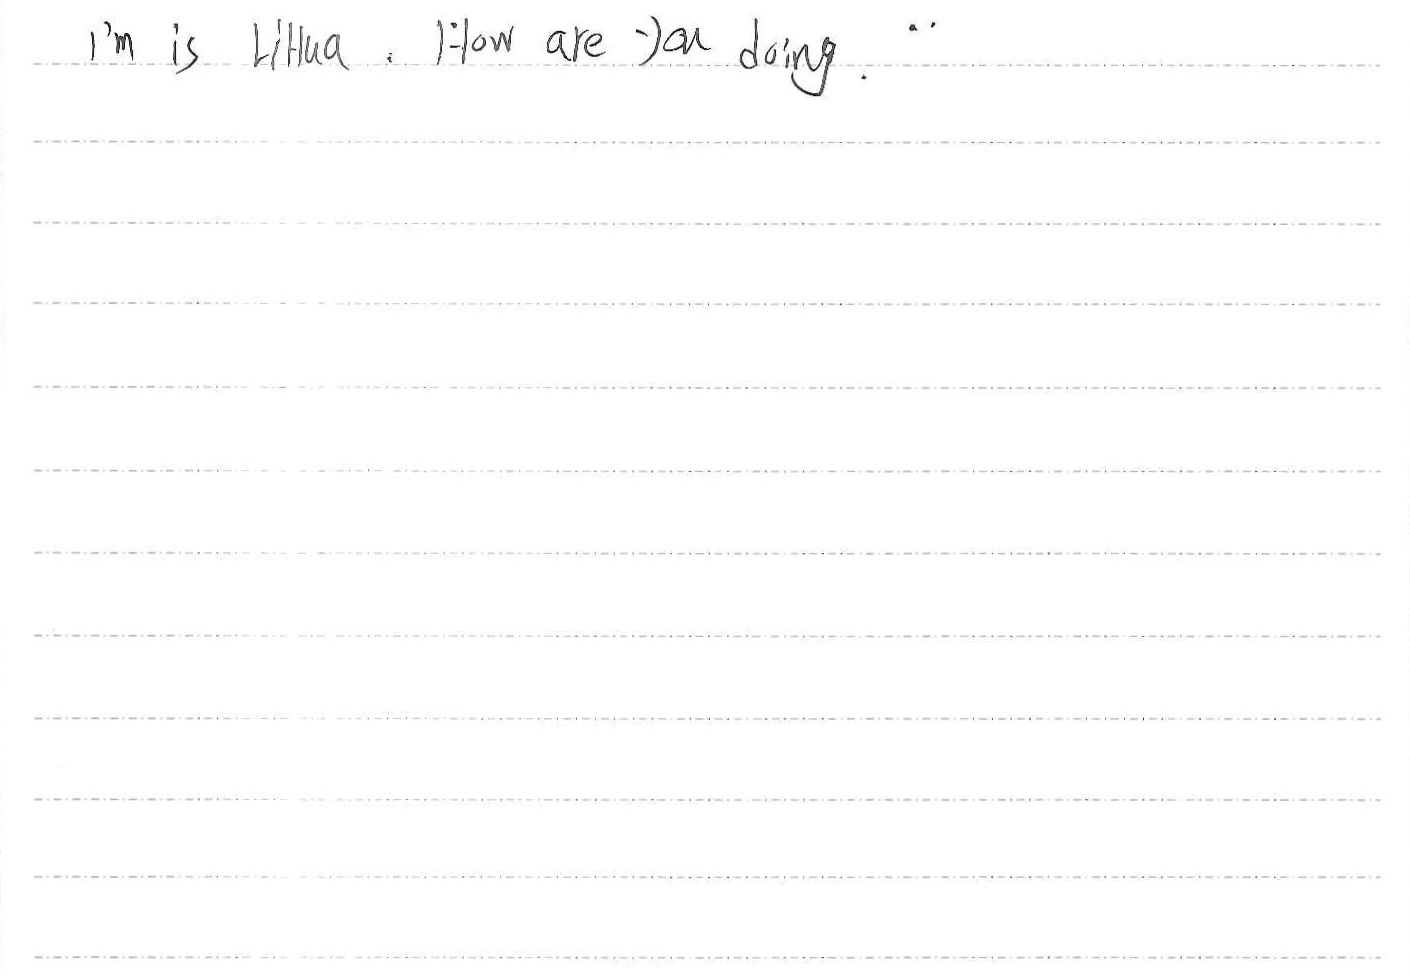 I'm is LiHua. How are you doing.